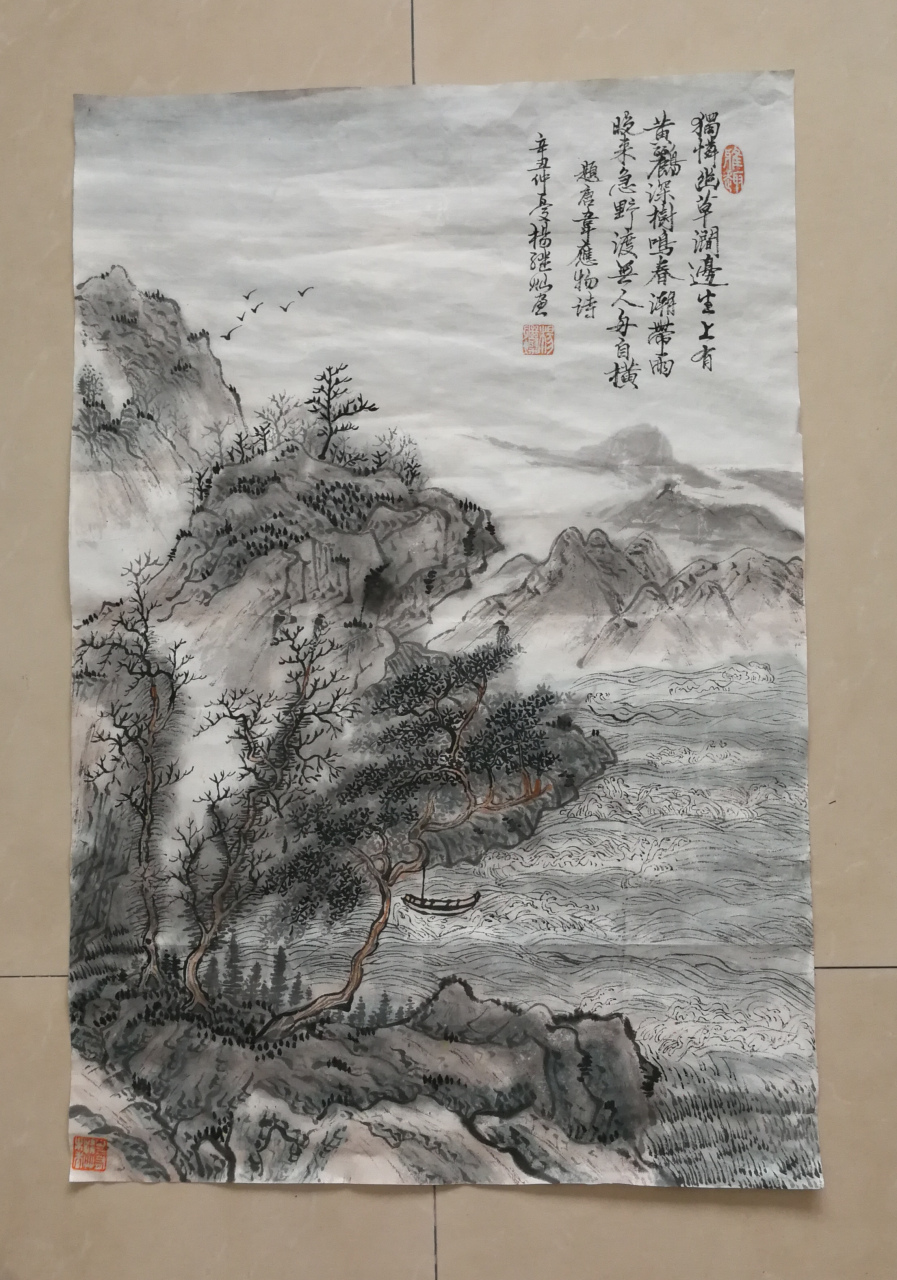 獨憐幽草澗邊生上有
黄鸝深樹鳴春潮帶雨
晚来急野渡無人舟自横
題唐韋應物诗
辛丑仲夏楊继灿画